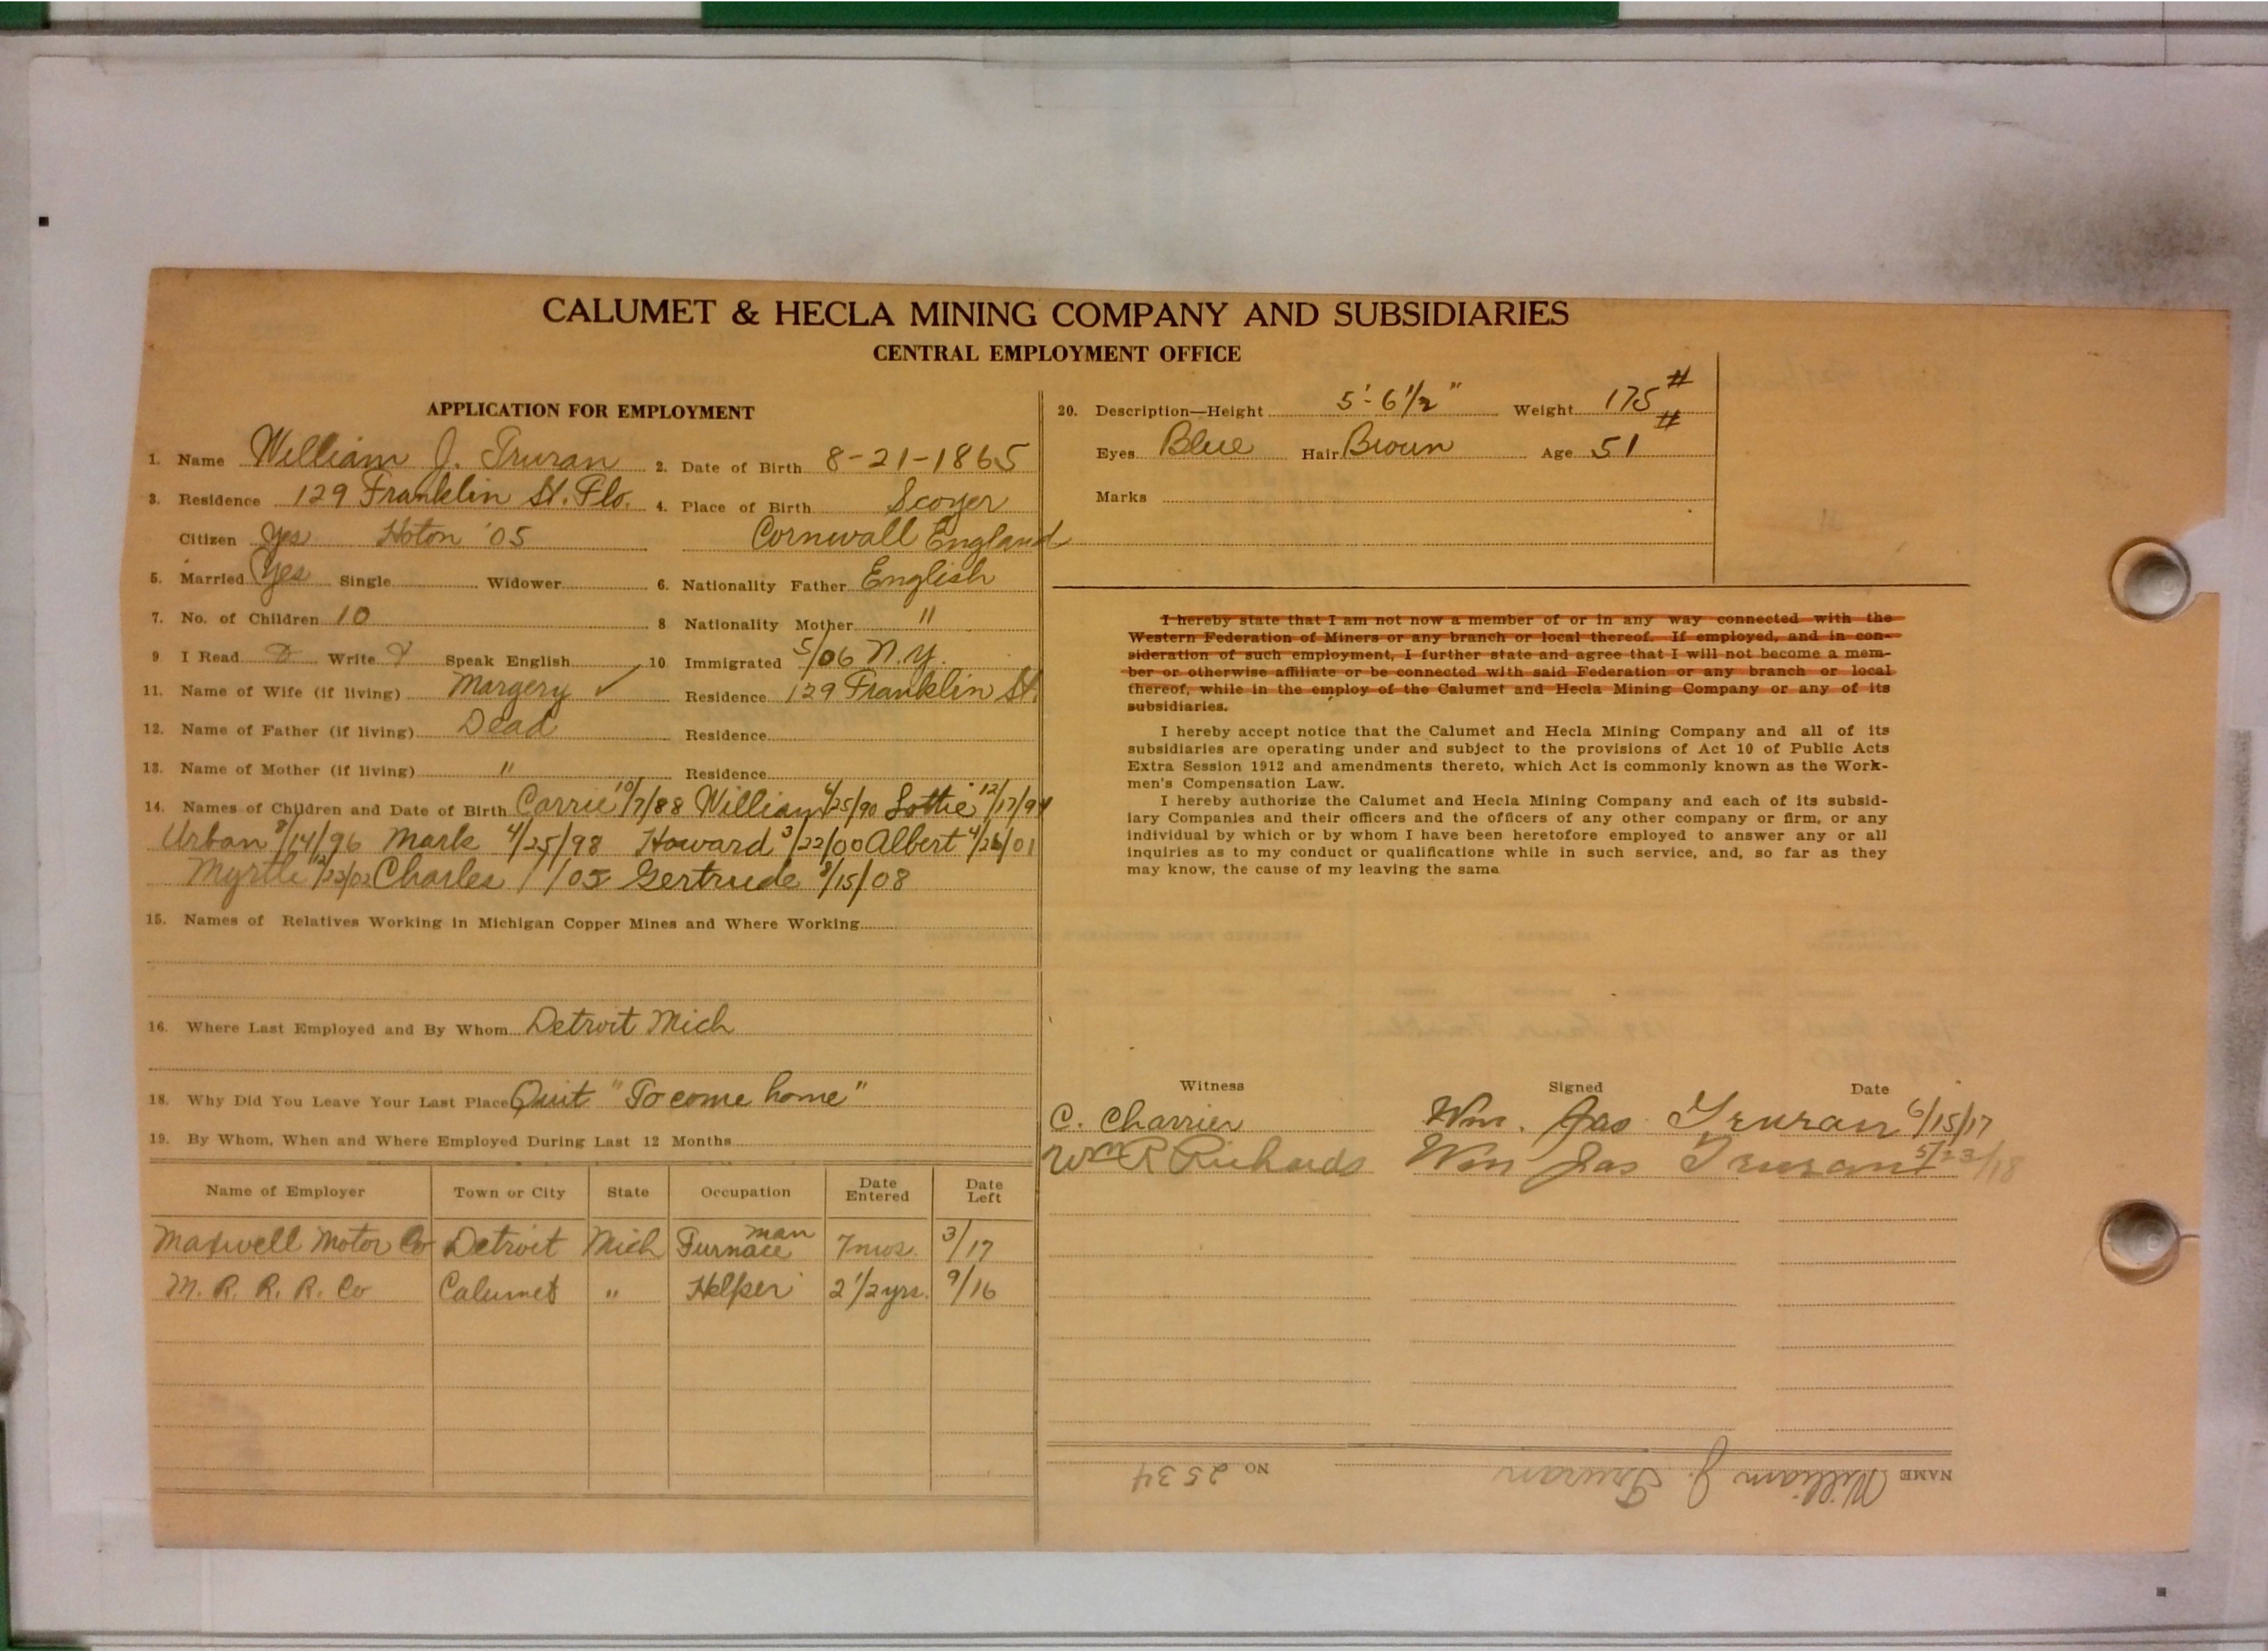 CALUMET & HECLA MINING COMPANY AND SUBSIDIARIES
CENTRAL EMPLOYMENT OFFICE
APPLICATION FOR EMPLOYMENT
1. Name William J. Truran 2. Date of Birth 8-21-1865
3. Residence 129 Franklin St. Flo. 4. Place of Birth Scoyer
Citizen Yes Hoton '05 Cornwall England
5. Married Yes Single Widower 6. Nationality Father English
7. No. of Children 10 8 Nationality Mother "
9 I Read Write Speak English ✓ 10 Immigrated 5/06 N.Y.
11. Name of Wife (if living) Margery ✓ Residence 129 Franklin St.
12. Name of Father (if living) Dead Residence
13. Name of Mother (if living) " Residence
14. Names of Children and Date of Birth Carrie 10/7/88 William 4/25/90 Lottie 12/17/94
Urban 8/14/96 Mark 4/25/98 Howard 3/22/00 Albert 4/26/01
Myrtle 12/23/02 Charles / /05 Gertrude 8/15/08
15. Names of Relatives Working in Michigan Copper Mines and Where Working
16. Where Last Employed and By Whom Detroit Mich
18. Why Did You Leave Your Last Place Quit "To come home"
19. By Whom, When and Where Employed During Last 12 Months
Name of Employer Town or City State Occupation Date Entered Date Left
Maxwell Motor Co Detroit Mich Furnace man 7 mos. 3/17
M. R. R. R. Co Calumet " Helper 2 1/2 yrs. 9/16
20. Description—Height 5'-6 1/2" Weight 175 #
Eyes Blue Hair Brown Age 51 #
Marks
I hereby state that I am not now a member of or in any way connected with the
Western Federation of Miners or any branch or local thereof. If employed, and in con-
sideration of such employment, I further state and agree that I will not become a mem-
ber or otherwise affiliate or be connected with said Federation or any branch or local
thereof, while in the employ of the Calumet and Hecla Mining Company or any of its
subsidiaries.
I hereby accept notice that the Calumet and Hecla Mining Company and all of its
subsidiaries are operating under and subject to the provisions of Act 10 of Public Acts
Extra Session 1912 and amendments thereto, which Act is commonly known as the Work-
men's Compensation Law.
I hereby authorize the Calumet and Hecla Mining Company and each of its subsid-
iary Companies and their officers and the officers of any other company or firm, or any
individual by which or by whom I have been heretofore employed to answer any or all
inquiries as to my conduct or qualifications while in such service, and, so far as they
may know, the cause of my leaving the same
Witness Signed Date
C. Charrier Wm. Jas Truran 6/15/17
Wm R Richards Wm Jas Truran 5/23/18
NAME William J. Truran NO 2534